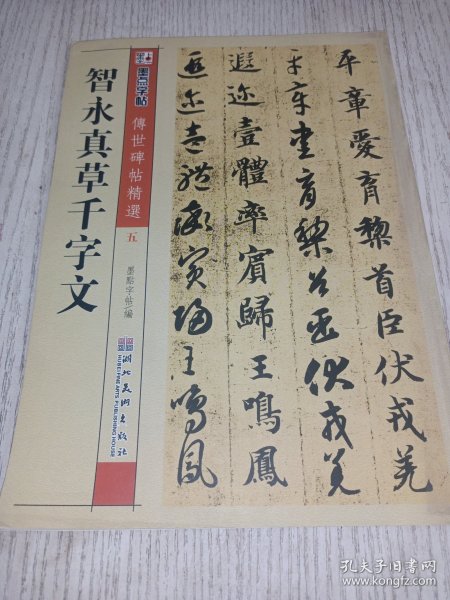 智永真草千字文
墨点字帖
傳世碑帖精選 五
墨點字帖/編
湖北美術出版社
HUBEI FINE ARTS PUBLISHING HOUSE
平章愛育黎首臣伏戎羌
平章愛育黎首臣伏戎羌
遐迩壹體率賓歸王鳴鳳
遐迩壹體率賓歸王鳴鳳
孔夫子旧书网
www.kongfz.com